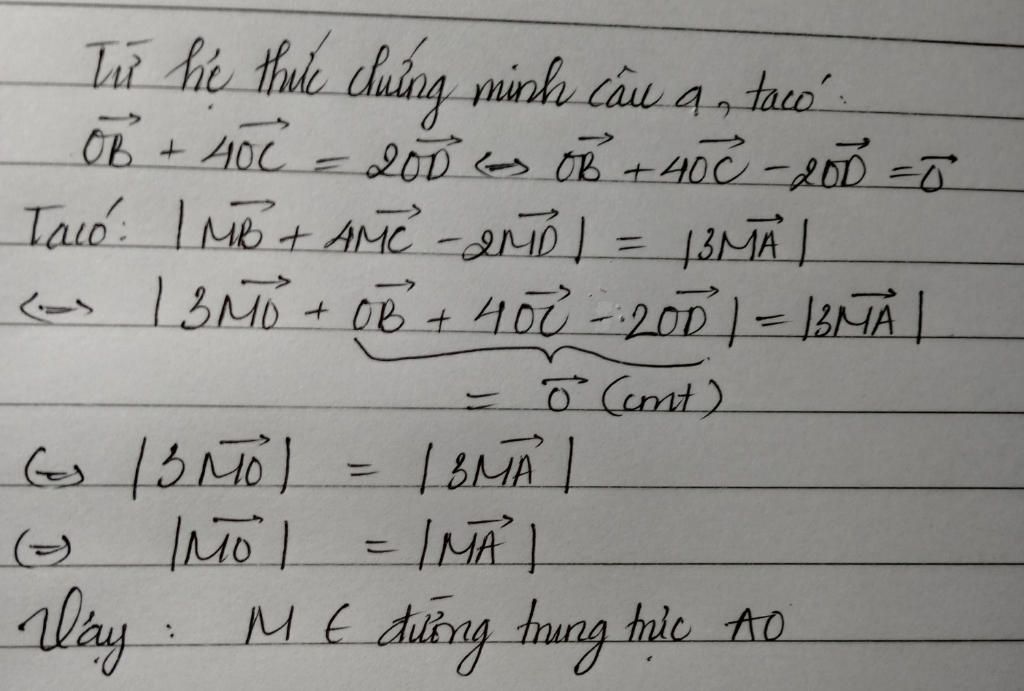 Từ hệ thức chứng minh câu a, ta có:
$\overrightarrow{OB} + 4\overrightarrow{OC} = 2\overrightarrow{OD} \Leftrightarrow \overrightarrow{OB} + 4\overrightarrow{OC} - 2\overrightarrow{OD} = \overrightarrow{0}$
Ta có: $|\overrightarrow{MB} + 4\overrightarrow{MC} - 2\overrightarrow{MD}| = |3\overrightarrow{MA}|$
$\Leftrightarrow |3\overrightarrow{MO} + \overrightarrow{OB} + 4\overrightarrow{OC} - 2\overrightarrow{OD}| = |3\overrightarrow{MA}|$
$= \overrightarrow{0}$ (cmt)
$\Leftrightarrow |3\overrightarrow{MO}| = |3\overrightarrow{MA}|$
$\Leftrightarrow |\overrightarrow{MO}| = |\overrightarrow{MA}|$
Vậy: M ∈ đường trung trực AO